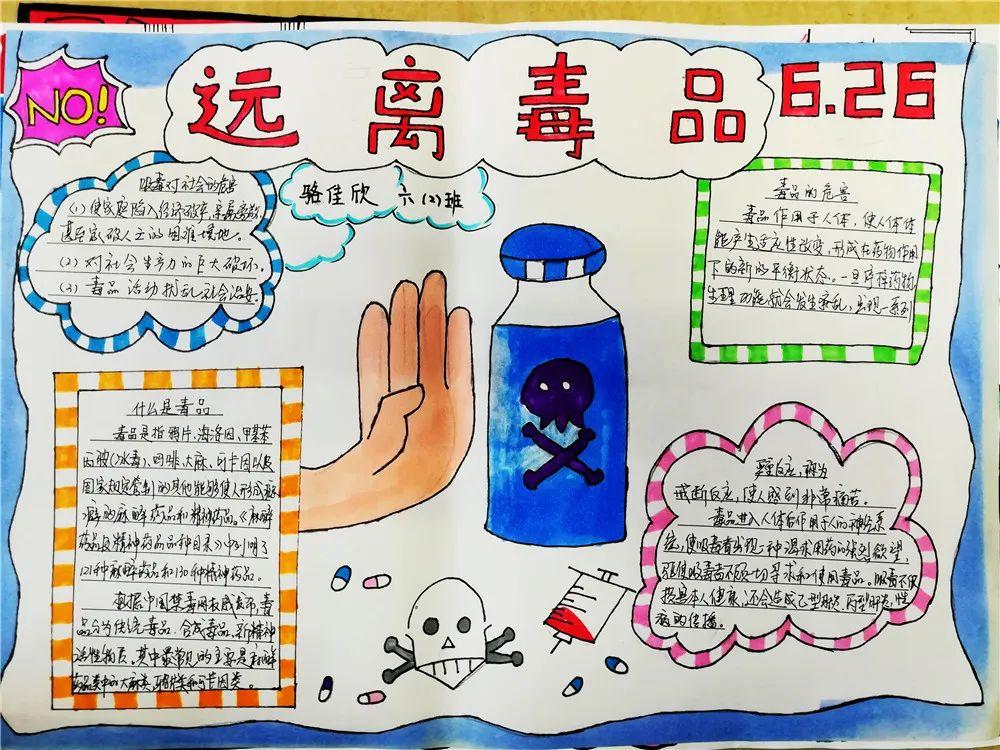 NO!
远离毒品
6.26
骆佳欣 六(2)班
吸毒对社会的危害
(1)使家庭陷入经济破碎、亲属离散、
甚至家破人亡的困难境地。
(2)对社会生产力的巨大破坏。
(3)毒品活动扰乱社会治安。
毒品的危害
毒品作用于人体,使人体体
能产生适应性改变,形成在药物作用
下的新的平衡状态。一旦停掉药物,
生理功能就会发生紊乱,出现一系列
什么是毒品
毒品是指鸦片、海洛因、甲基苯
丙胺(冰毒)、吗啡、大麻、可卡因以及
国家规定管制的其他能够使人形成瘾
癖的麻醉药品和精神药品。《麻醉
药品及精神药品品种目录》中列明了
121种麻醉药品和130种精神药品。
根据中国禁毒网权威发布,毒
品分为传统毒品、合成毒品、新精神
活性物质。其中最常见的主要是麻醉
药品类中的大麻类、鸦片类和可卡因类。
反应,称为
戒断反应,使人感到非常痛苦。
毒品进入人体后作用于人的神经系
统,使吸毒者出现一种渴求用药的强烈欲望,
驱使吸毒者不顾一切寻求和使用毒品。吸毒不仅
损害本人健康,还会造成乙型肝炎、丙型肝炎,性
病的传播。